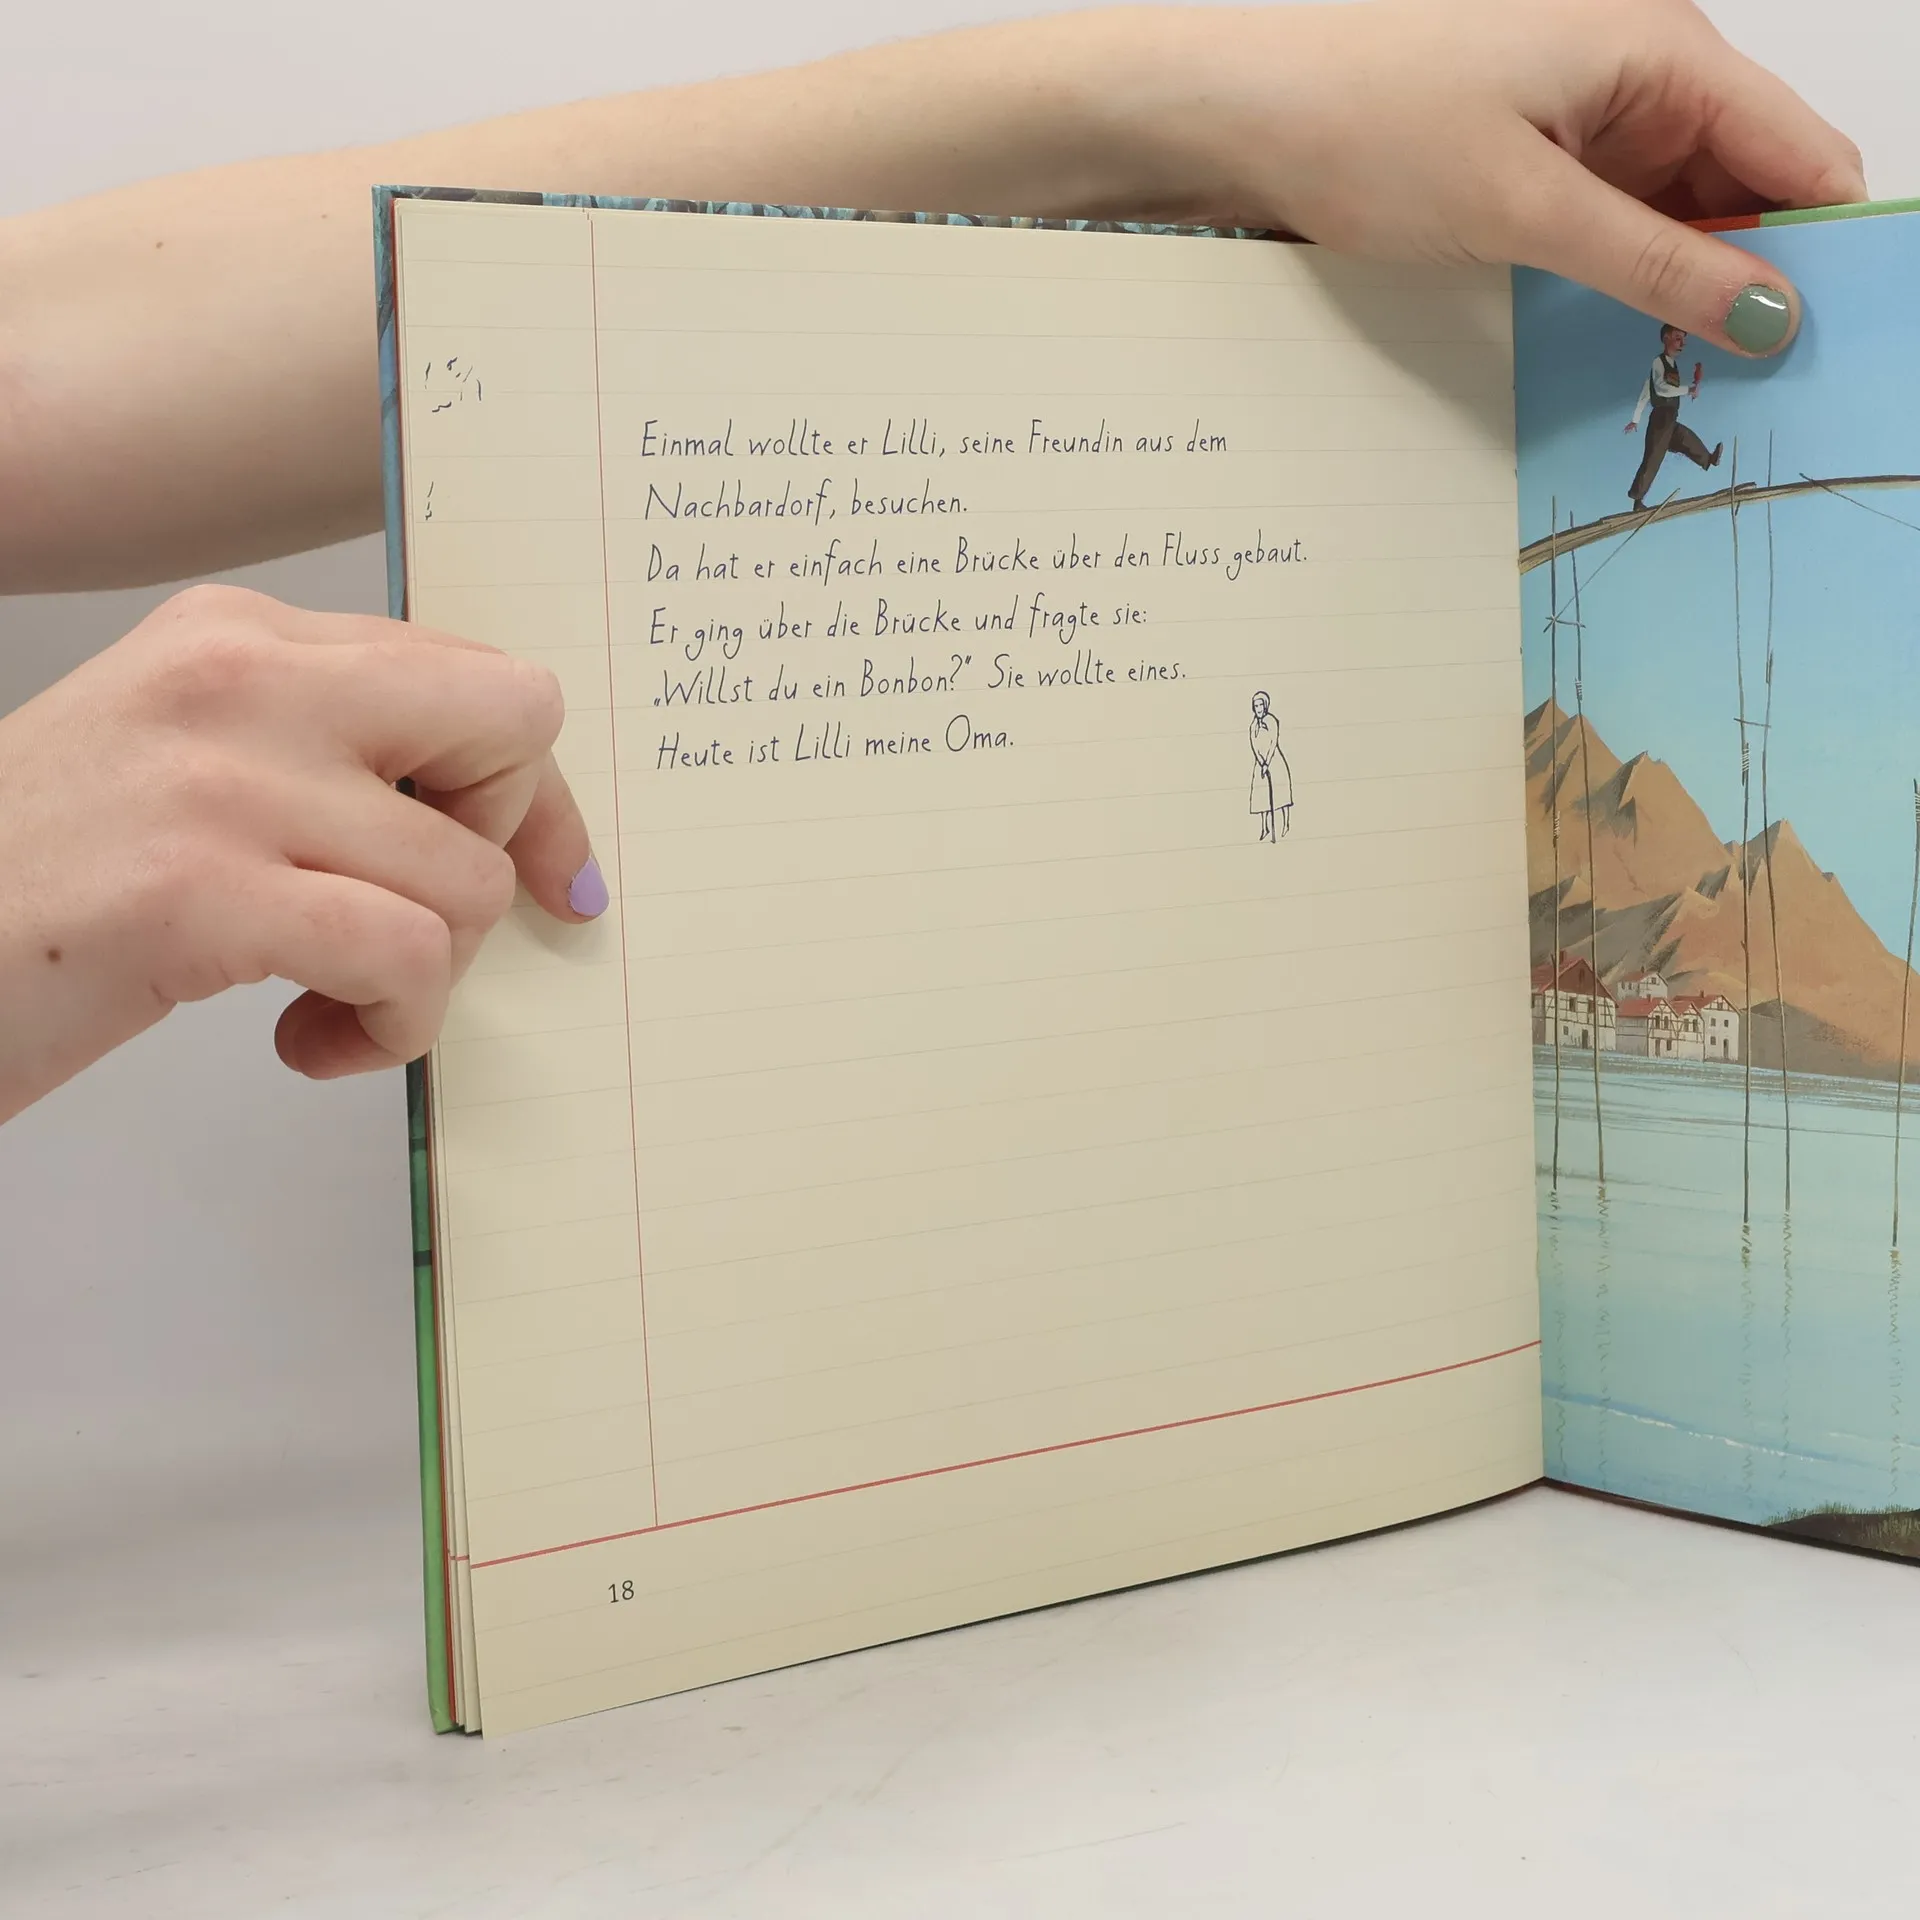 Einmal wollte er Lilli, seine Freundin aus dem
Nachbardorf, besuchen.
Da hat er einfach eine Brücke über den Fluss gebaut.
Er ging über die Brücke und fragte sie:
„Willst du ein Bonbon?“ Sie wollte eines.
Heute ist Lilli meine Oma.
18